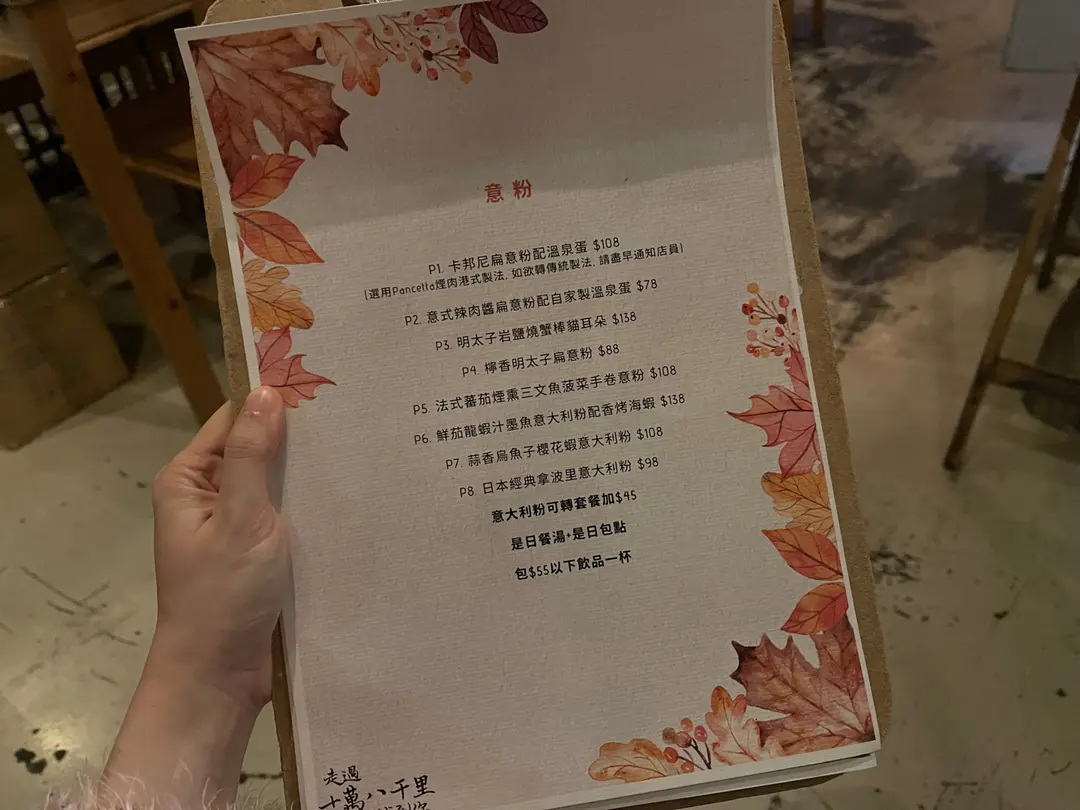 意粉
P1. 卡邦尼扁意粉配溫泉蛋 $108
(選用Pancetta煙肉港式製法, 如欲轉傳統製法, 請盡早通知店員)
P2. 意式辣肉醬扁意粉配自家製溫泉蛋 $78
P3. 明太子岩鹽燒蟹棒貓耳朵 $138
P4. 檸香明太子扁意粉 $88
P5. 法式蕃茄煙熏三文魚菠菜手卷意粉 $108
P6. 鮮茄龍蝦汁墨魚意大利粉配香烤海蝦 $138
P7. 蒜香烏魚子櫻花蝦意大利粉 $108
P8. 日本經典拿波里意大利粉 $98
意大利粉可轉套餐加$45
是日餐湯+是日包點
包$55以下飲品一杯
走過
十萬八千里